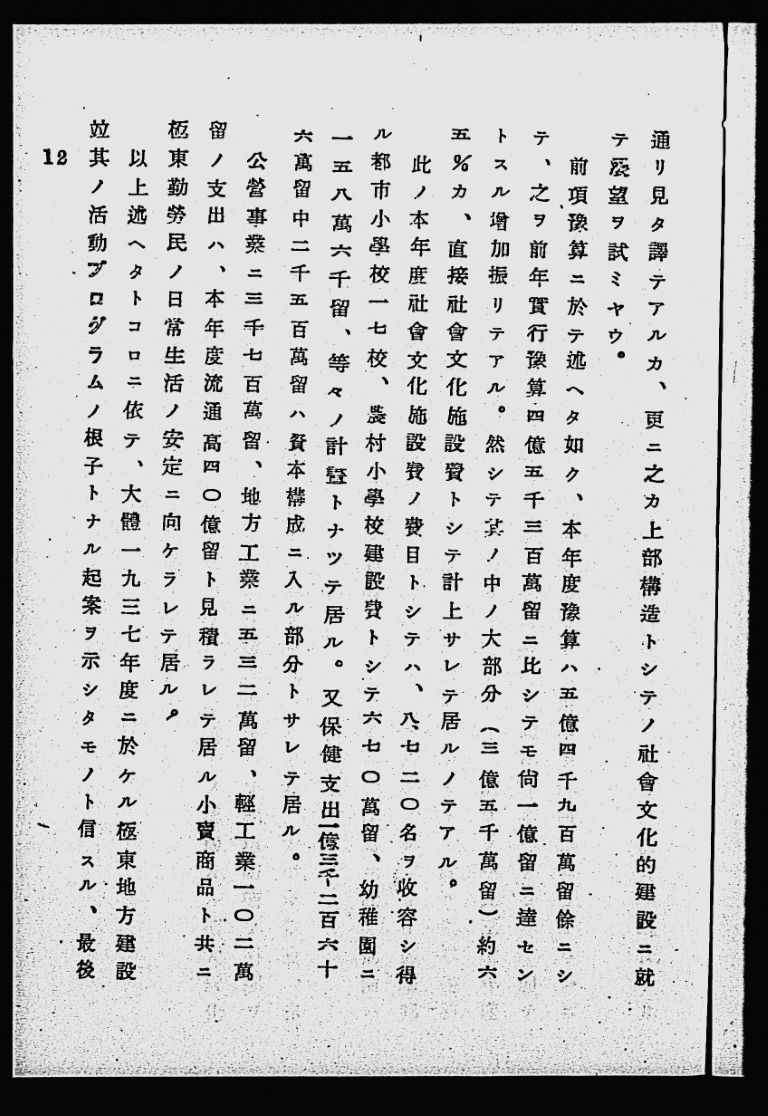 通リ見タ譯テアルカ、更ニ之カ上部構造トシテノ社會文化的建設ニ就
テ展望ヲ試ミヤウ。
前項豫算ニ於テ述ヘタ如ク、本年度豫算ハ五億四千九百萬留餘ニシ
テ、之ヲ前年實行豫算四億五千三百萬留ニ比シテモ尙一億留ニ達セン
トスル增加振リテアル。然シテ其ノ中ノ大部分(三億五千萬留)約六
五%カ、直接社會文化施設費トシテ計上サレテ居ルノテアル。
此ノ本年度社會文化施設費ノ費目トシテハ、八、七二〇名ヲ收容シ得
ル都市小學校一七校、農村小學校建設費トシテ六七〇萬留、幼稚園ニ
一五八萬六千留、等々ノ計畫トナツテ居ル。又保健支出一億三千二百六十
六萬留中二千五百萬留ハ資本構成ニ入ル部分トサレテ居ル。
公營事業ニ三千七百萬留、地方工業ニ五三二萬留、輕工業一〇二萬
留ノ支出ハ、本年度流通高四〇億留ト見積ラレテ居ル小賣商品ト共ニ
極東勤勞民ノ日常生活ノ安定ニ向ケラレテ居ル。
以上述ヘタトコロニ依テ、大體一九三七年度ニ於ケル極東地方建設
竝其ノ活動プログラムノ根子トナル起案ヲ示シタモノト信スル、最後
12